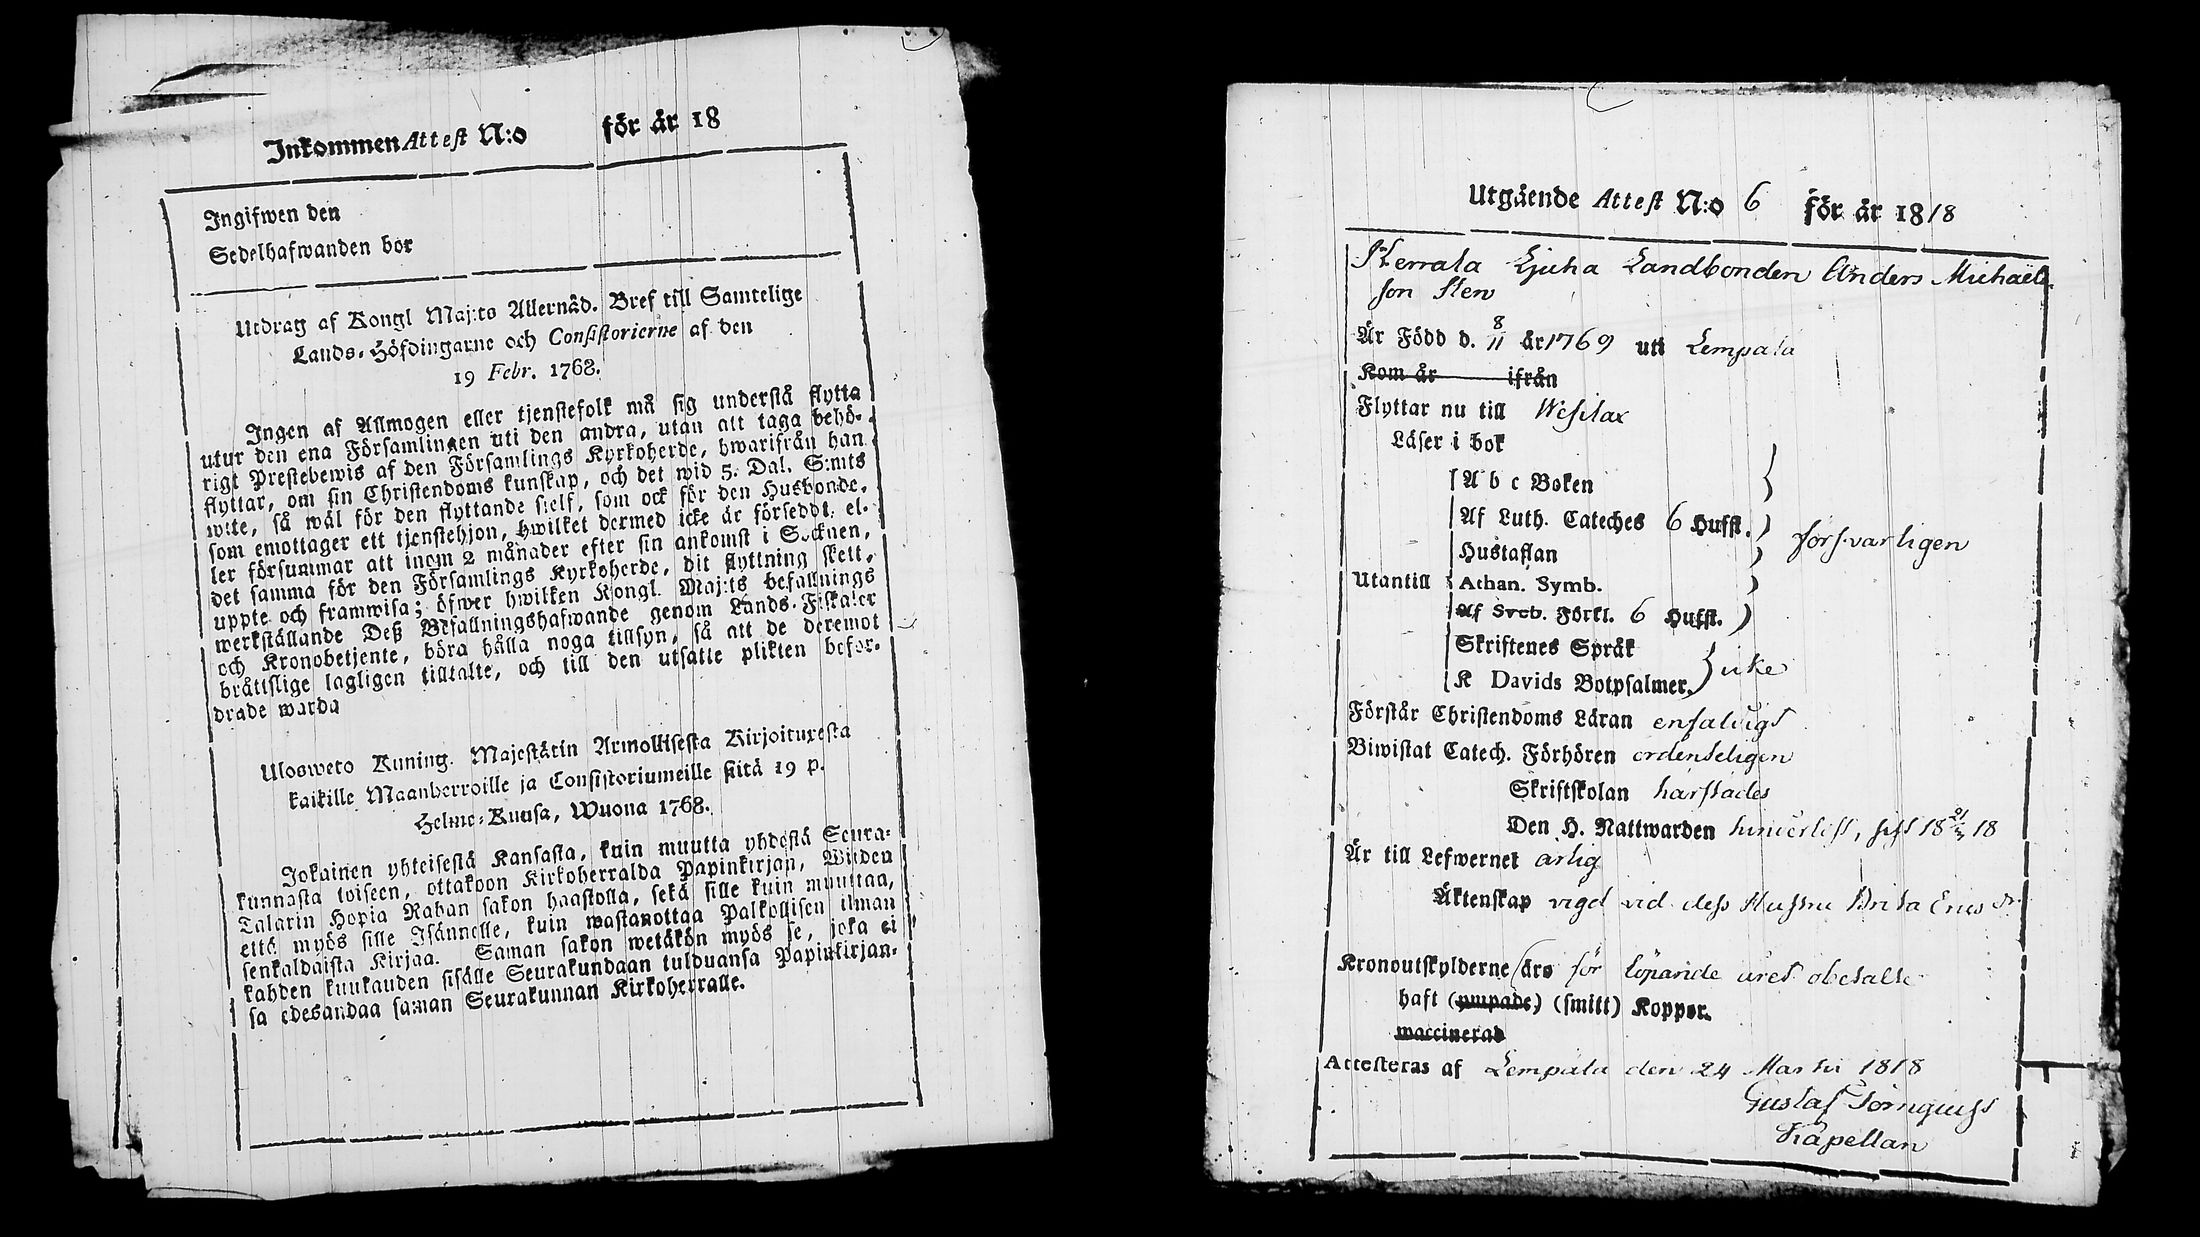 Inkommen Attest N:o för år 18
Ingifwen den
Sedelhafwanden bor
Utdrag af Kongl Maj:ts Allernåd. Bref till Samtelige
Lands-Höfdingarne och Consistorierne af den
19 Febr. 1768.
Ingen af Allmogen eller tjenstefolk må sig understå flytta
utur den ena Församlingen uti den andra, utan att taga behö-
rigt Prestebewis af den Församlings Kyrkoherde, hwarifrån han
flyttar, om sin Christendoms kunskap, och det wid 5. Dal. S:mts
wite, så wäl för den flyttande sielf, som ock för den Husbonde,
som emottager ett tjenstehjon, hwilket dermed icke är försedt, el-
ler försummar att inom 2 månader efter sin ankomst i Socknen,
det samma för den Församlings Kyrkoherde, dit flyttning skett,
uppte och framwisa; öfwer hwilken Kongl. Maj:ts befallnings
werkställande Deß Befallningshafwande genom Lands-Fiskaler
och Kronobetjente, böra hålla noga tillsyn, så att de deremot
bråttslige lagligen tilltalte, och till den utsatte plikten befor-
drade warda
Ulosweto Kuning. Majestätin Armollisesta Kirjoituxesta
kaikille Maanherroille ja Consistoriumeille siitä 19 p.
Helme-Kuusa, Wuona 1768.
Jokainen yhteisestä Kansasta, kuin muutta yhdestä Seura-
kunnasta toiseen, ottakoon Kirkoherralda Papinkirjan, Wiiden
Talarin Hopia Rahan sakon haastolla, sekä sille kuin muuttaa,
että myös sille Isännelle, kuin wastanottaa Palkollisen ilman
senkaldaista Kirjaa. Saman sakon wetäkön myös se, joka ei
kahden kuukauden sisälle Seurakundaan tulduansa Papinkirjan-
sa edesandaa saman Seurakunnan Kirkoherralle.
Utgående Attest N:o 6 för år 1818
Herrala Tjuha Landbonden Anders Michaels
son Sten
Är Född d. 8/11 år 1769 uti Lempala
Kom år ifrån
Flyttar nu till Wesilax
Läser i bok
A b c Boken
Af Luth. Cateches 6 Hufst.
Hustaflan
försvarligen
Utantill Athan. Symb.
Af Sveb. Förkl. 6 Hufst.
Skriftenes Språk
K Davids Botpsalmer. icke
Förstår Christendoms Läran enfaldigt
Biwistat Catech. Förhören ordenteligen
Skriftskolan härstädes
Den H. Nattwarden sist 18 18
Är till Lefwernet ärlig
Äktenskap vigd vid dess Hustru Brita Ericsdr
Kronoutskylderne äro för löpande året obetalte
haft (ympade,) (smitt) Koppor.
waccinerad
Attesteras af Lempala den 24 Martii 1818
Gustaf Törnquist
Kapellan